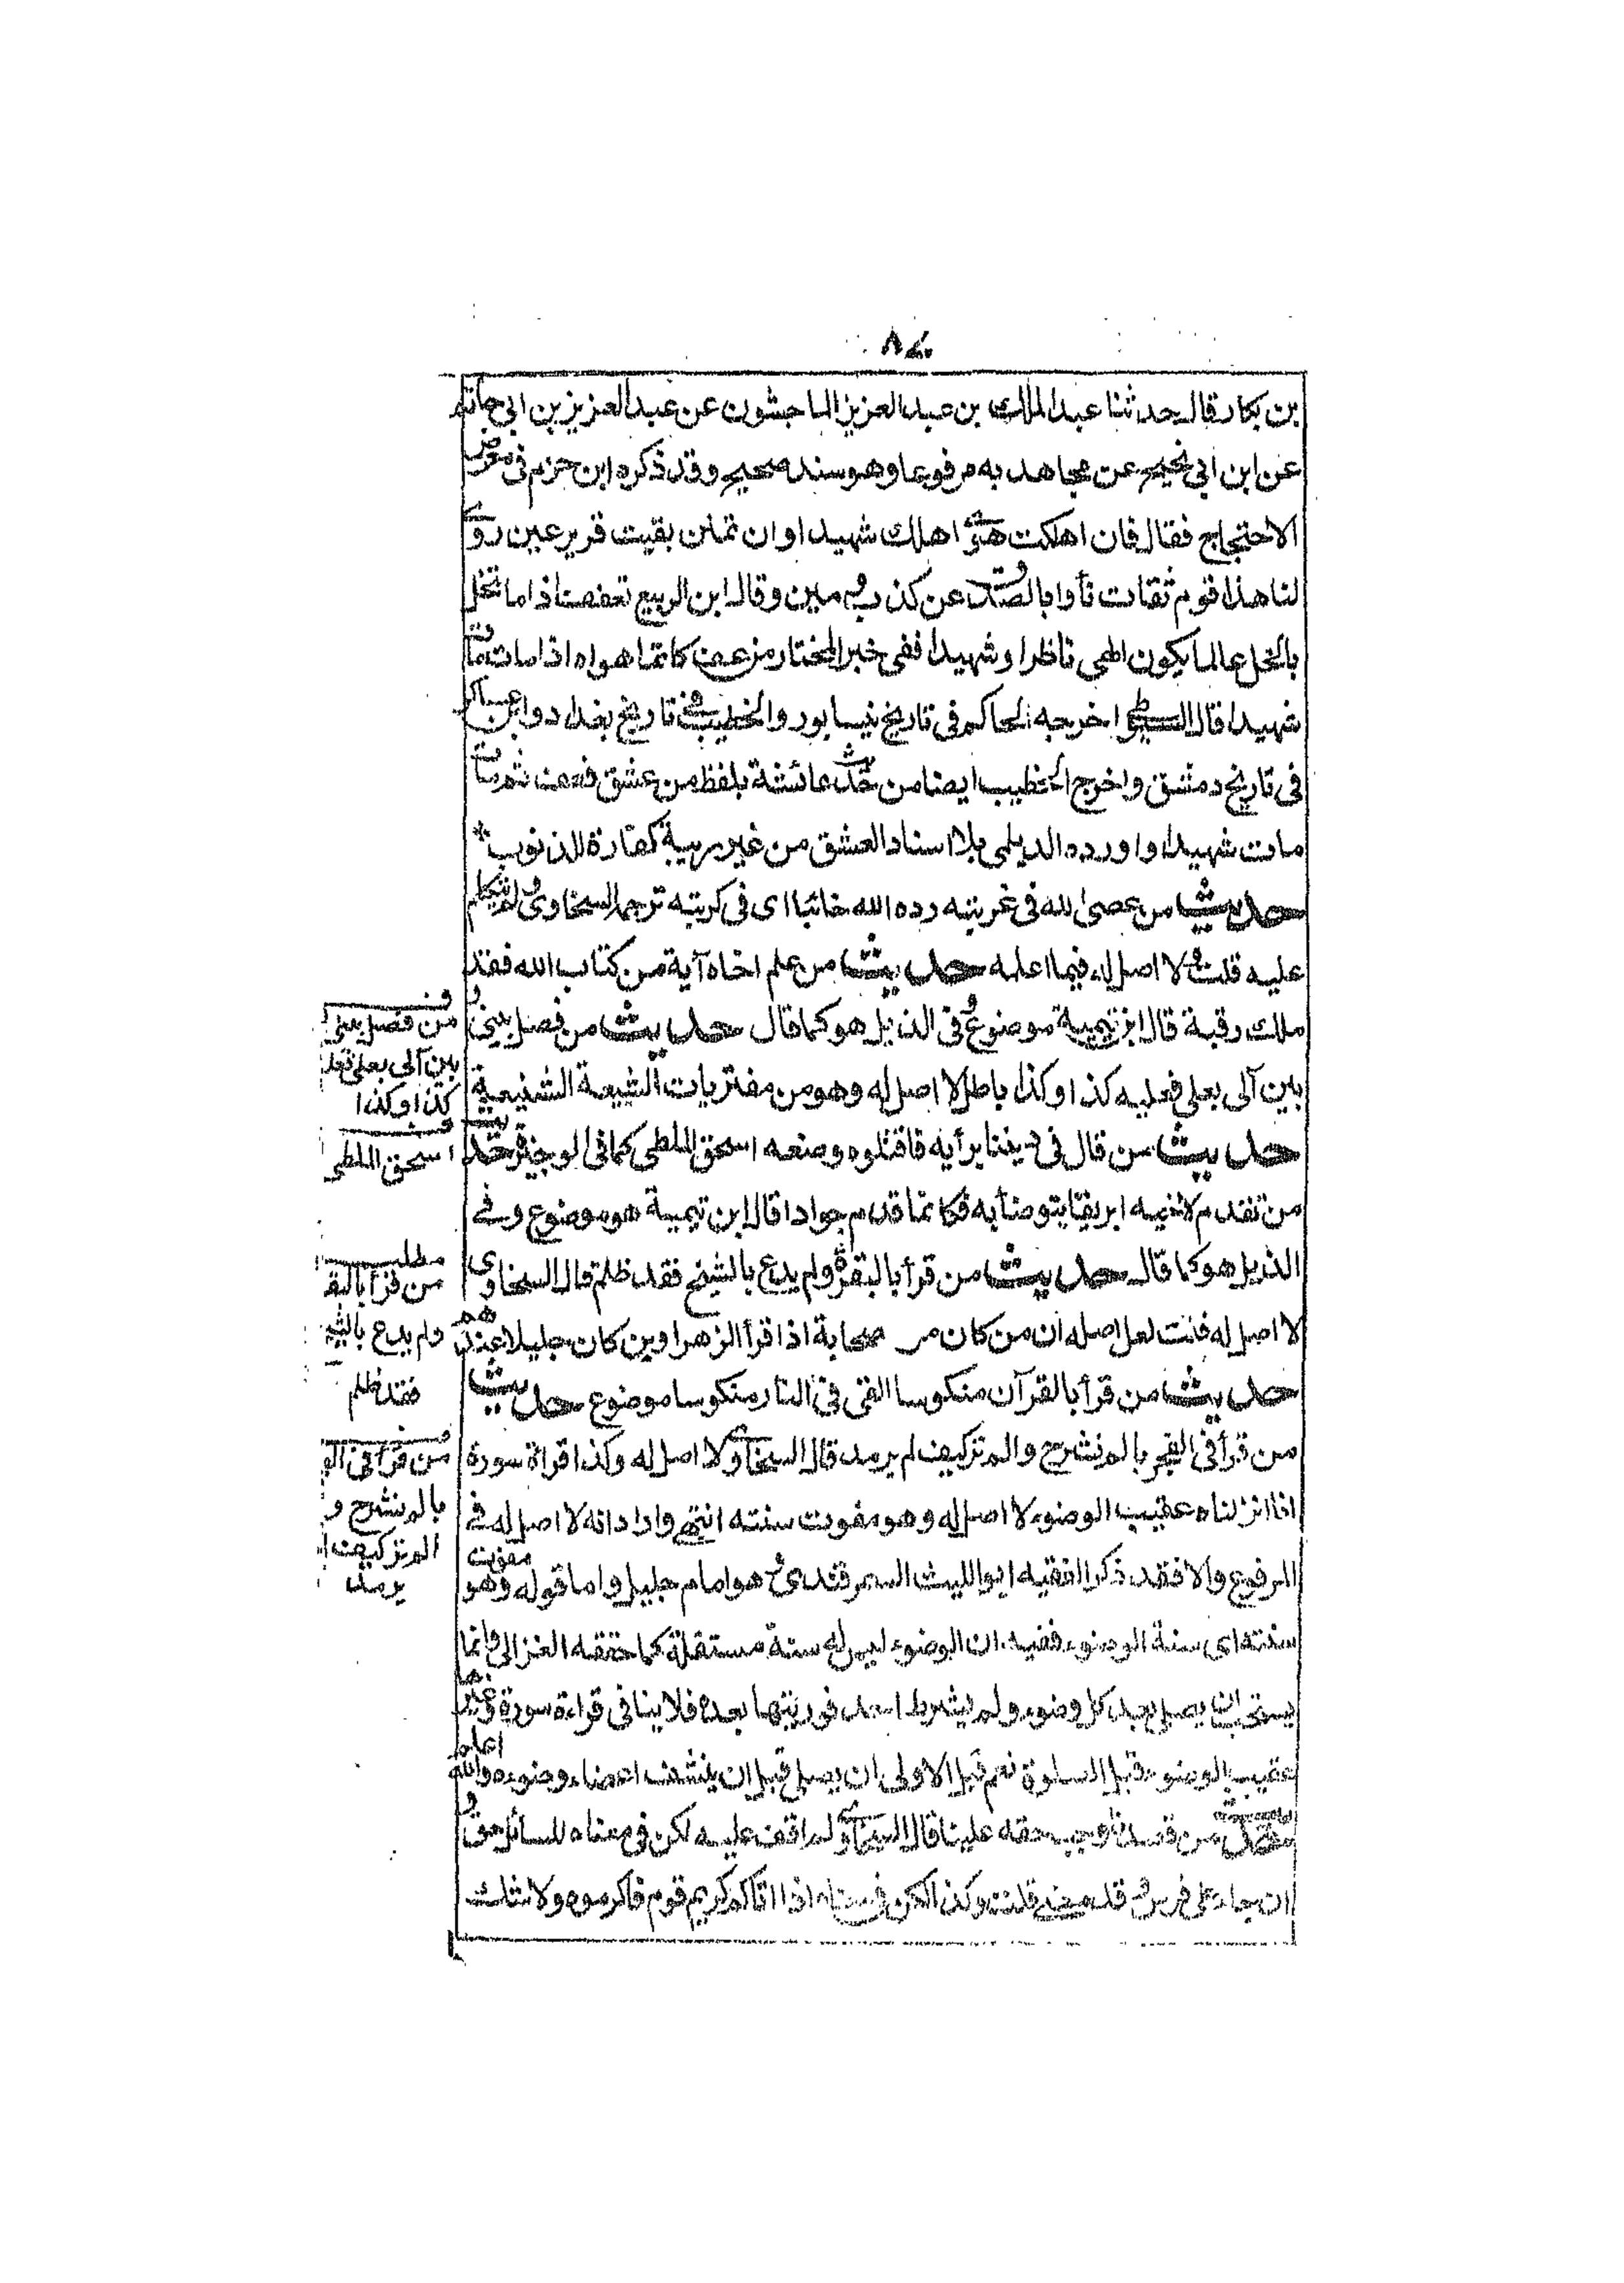 بن بكار قال حدثنا عبد الملك بن عبد العزيز الماجشون عن عبد العزيز بن ابي حازم
عن ابن ابي نجيح عن مجاهد به مرفوعا وهو سند صحيح وقد ذكره ابن حزم فى معرض
الاحتجاج فقال فان اهلكت هوى اهلك شهيدا وان تمنن بقيت قرير عين روى
لنا هذا قوم ثقات نأوا بالصدق عن كذب ومين وقال ابن الربيع تعفف اذا ما تخل
بالخل عالما يكون الهى ناظرا وشهيدا ففى خبر المختار من عف كاتما هواه اذا مات مات
شهيدا قال السيوطى اخرجه الحاكم فى تاريخ نيسابور والخطيب فى تاريخ بغداد وابن عساكر
فى تاريخ دمشق واخرج الخطيب ايضا من حديث عائشة بلفظ من عشق فعف ثم مات
مات شهيدا واورده الديلمى بلا اسناد العشق من غير ريبة كفارة للذنوب *
حديث من عصى الله فى غربته رده الله خائبا اى فى كربته ترجمه السخاوى ولم يتكلم
عليه قلت لا اصل له فيما اعلمه حديث من علم اخاه آية من كتاب الله فقد
ملك رقبة قال ابن تيمية موضوع وفى الذيل هو كما قال حديث من فصل بينى و
بين آلى بعلى فعليه كذا وكذا باطل لا اصل له وهو من مفتريات الشيعة الشنيعة
حديث من قال فى ديننا برأيه فاقتلوه وضعه اسحق الملطى كما فى الوجيز حديث
من تقدم لاخيه ابريقا يتوضأ به فكانما قدم جوادا قال ابن تيمية هو موضوع وفى
الذيل هو كما قال حديث من قرأ بالبقرة ولم يدع بالشيخ فقد ظلم قال السخاوى
لا اصل له قلت لعل اصله ان من كان من صحابة اذا قرأ الزهراوين كان جليلا عندهم
حديث من قرأ بالقرآن منكوسا القى فى النار منكوسا موضوع حديث
من قرأ فى الفجر بالم نشرح والم تر كيف لم يرمد قال السخاوى لا اصل له وكذا قراة سورة
انا انزلناه عقيب الوضوء لا اصل له وهو مفوت سنته انتهى واراد انه لا اصل له فى
المرفوع والا فقد ذكر الفقيه ابو الليث السمرقندى وهو امام جليل واما قوله وهو مفوت
سنته اى سنة الوضوء ففيه ان الوضوء ليس له سنة مستقلة كما حققه الغزالى وانما
يستحب ان يصلى بعد كل وضوء ولم يشترط احد فوريتها بعده فلا ينافى قراءة سورة وغيرها
عقيب الوضوء قبل الصلوة نعم قيل الاولى ان يصلى قبل ان ينشف اعضاء وضوءه والله اعلم
حديث من قصدنا وجب حقه علينا قال السخاوى لم اقف عليه لكن فى معناه للسائل حق و
ان جاء على فرس وقد مضى قلت وكذا لكن فى معناه اذا اتاكم كريم قوم فاكرموه ولا شك
من فصل بينى و
بين آلى بعلى فعليه
كذا وكذا
اسحق الملطى
مطلب
من قرأ بالبقرة
ولم يدع بالشيخ
فقد ظلم
من قرأ فى الفجر
بالم نشرح و
الم تر كيف لم
يرمد